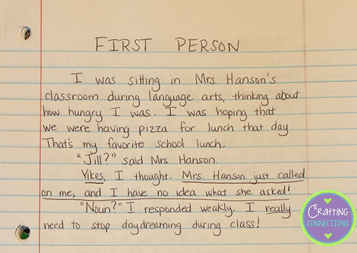 FIRST PERSON
I was sitting in Mrs. Hanson's
classroom during language arts, thinking about
how hungry I was. I was hoping that
we were having pizza for lunch that day.
That's my favorite school lunch.
"Jill?" said Mrs. Hanson.
Yikes, I thought. Mrs. Hanson just called
on me, and I have no idea what she asked!
"Noun?" I responded weakly. I really
need to stop daydreaming during class!
CRAFTING
CONNECTIONS